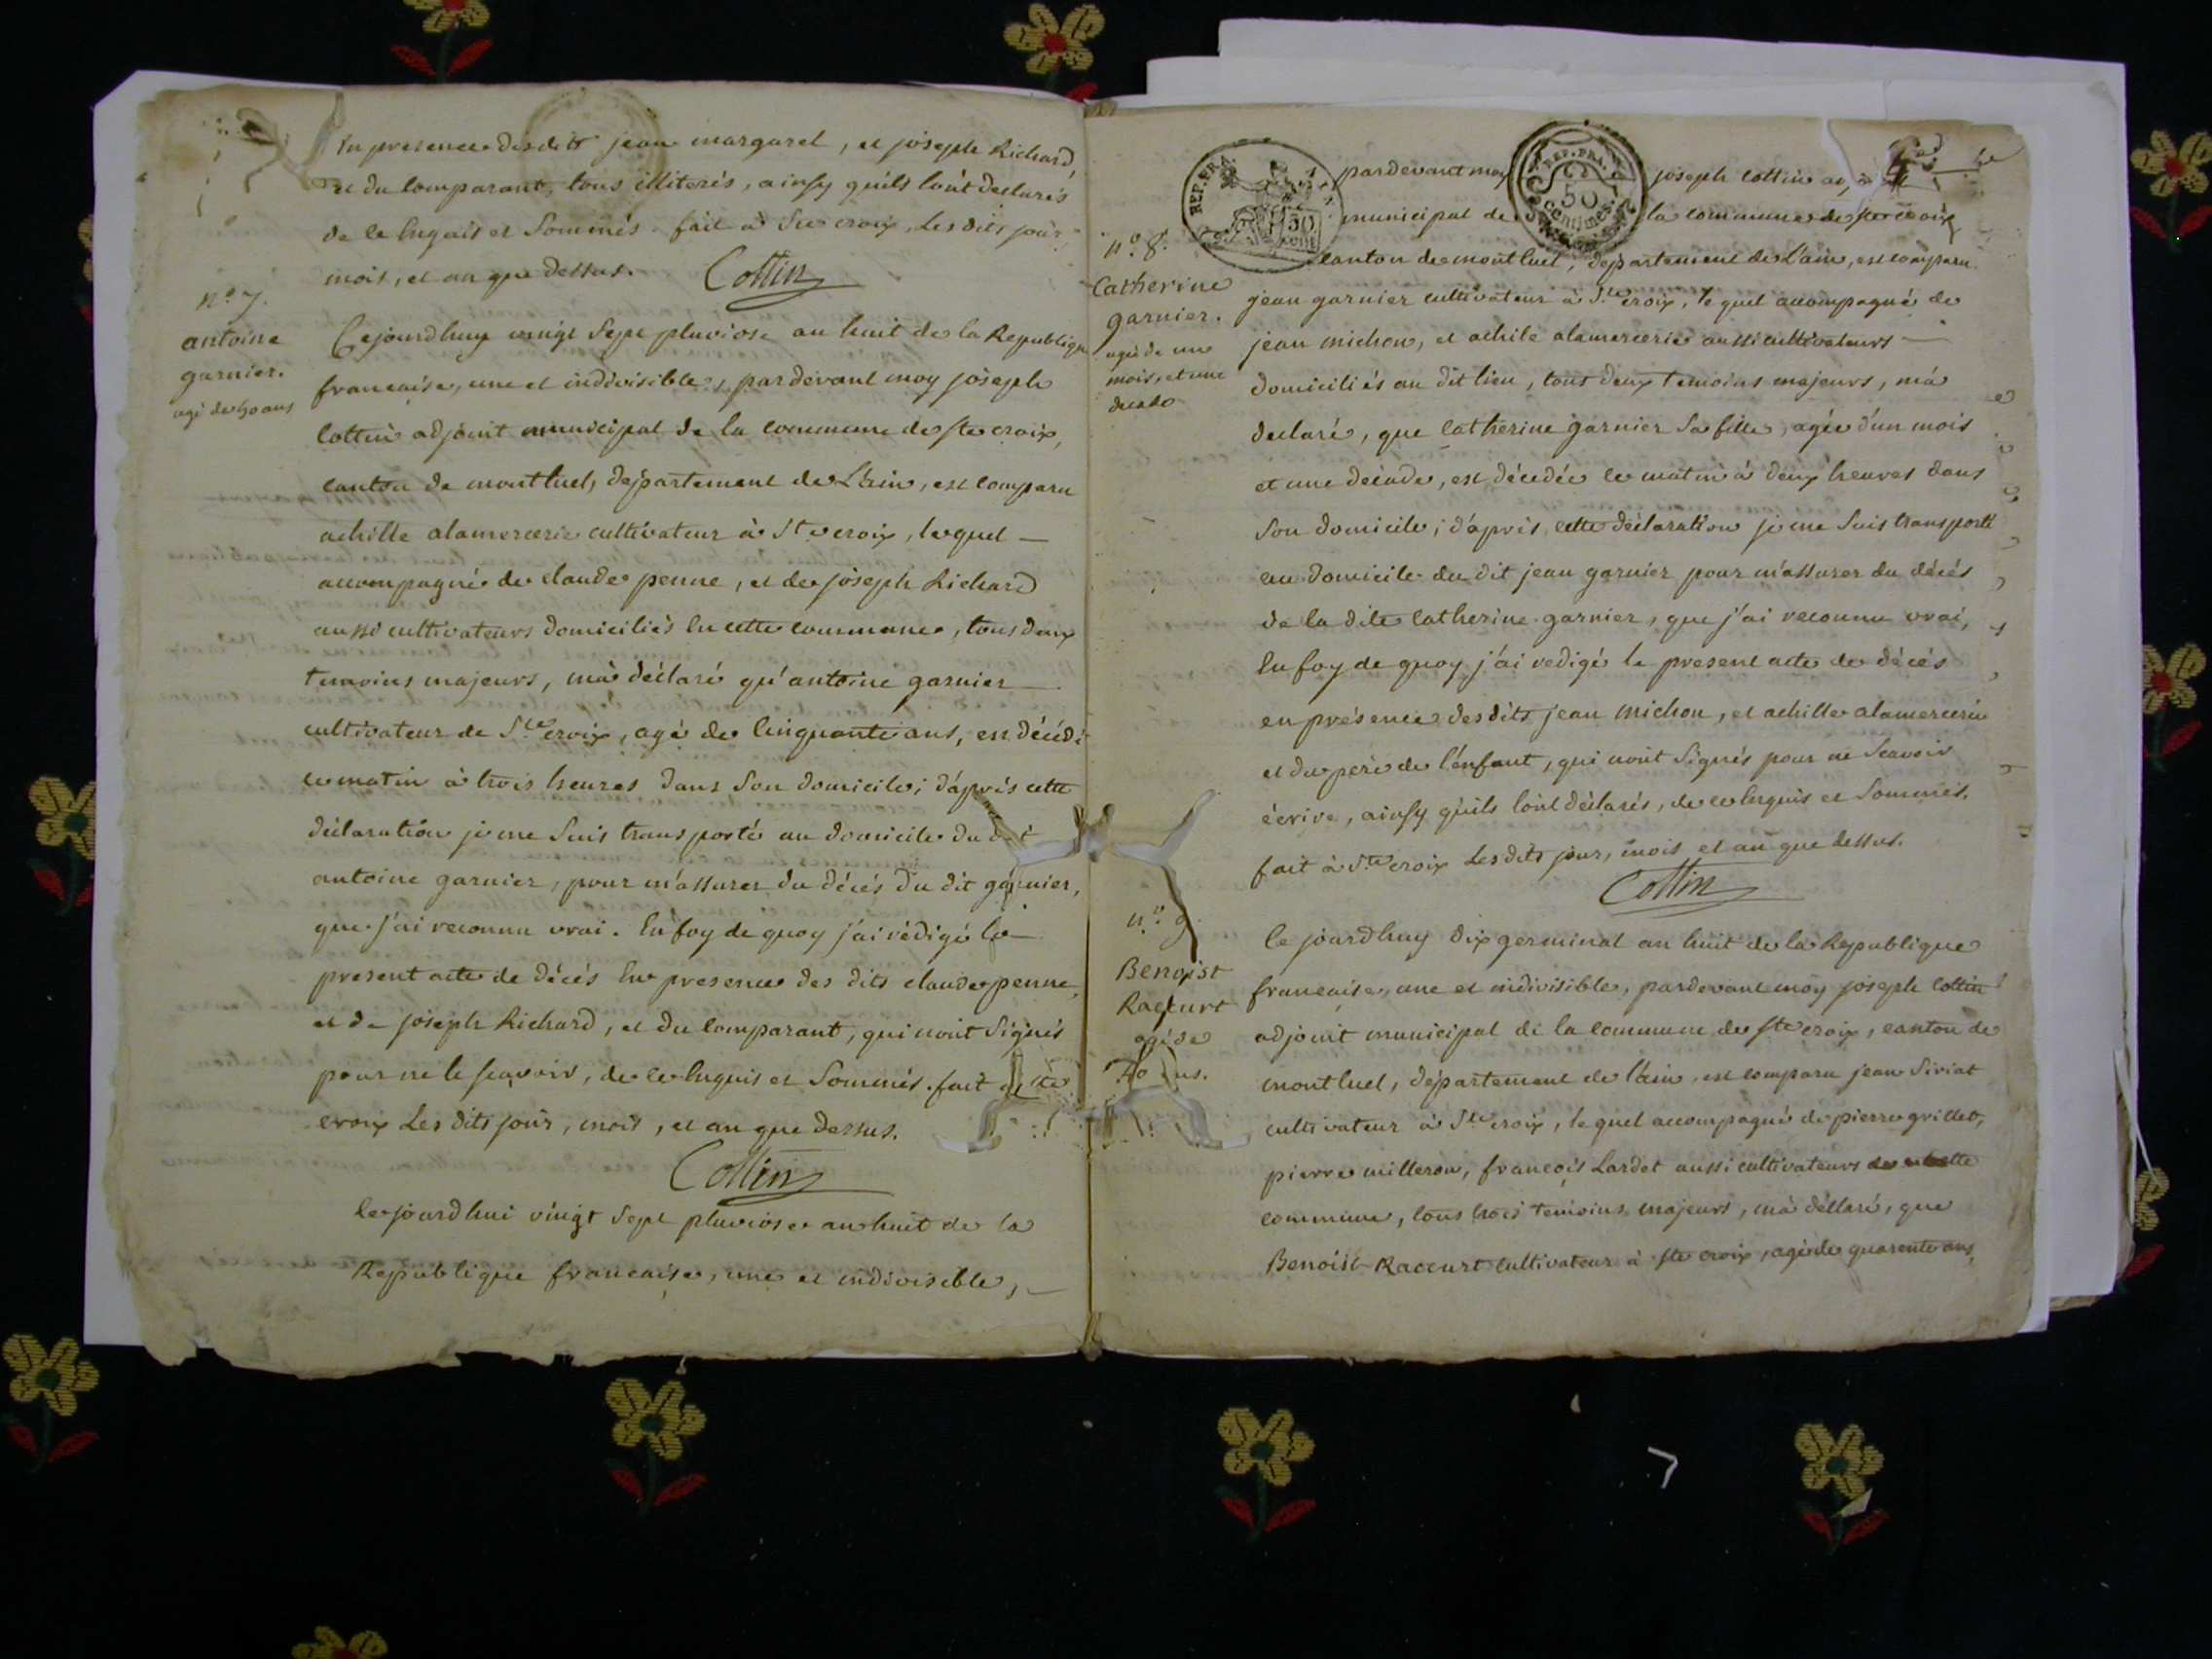 En presence desdits jean margarel, et joseph Richard,
et du Comparant, tous illiterés, ainsy qu'ils l'ont declarés
de ce Enquis et Sommés. fait à Ste croix, Les dits jour,
mois, et an que dessus. Cottin
n.o 7.
antoine
garnier.
agé de 50 ans
Cejourdhuy vingt Sept pluviose an huit de la Republique
francaise, une et indivisible, pardevant moy joseph
Cottin adjoint municipal de la commune de ste croix,
canton de montluel, département de L'ain, est comparu
achille alamercerie cultivateur à Ste croix, lequel
accompagné de claude penne, et de joseph Richard
aussi cultivateurs domiciliés En cette commune, tous deux
temoins majeurs, m'a déclaré qu'antoine garnier
cultivateur de Ste croix, agé de Cinquante ans, est décédé
ce matin à trois heures dans Son domicile; d'aprés cette
déclaration je me Suis transporté au domicile du dit
antoine garnier, pour m'assurer du décés du dit garnier,
que j'ai reconnu vrai. En foy de quoy j'ai rédigé le
present acte de décés En presence des dits claude penne,
et de joseph Richard, et du Comparant, qui n'ont Signés
pour ne le sçavoir, de ce Enquis et Sommés. fait à Ste
croix Les dits jour, mois, et an que dessus.
Cottin
Cejourdhui vingt Sept pluviose an huit de la
Republique francaise, une et indivisible,
REP. FRA.
50
REP. FRA.
50
centimes
pardevant moy joseph Cottin
municipal de la commune de ste croix
canton de montluel, département de L'ain, est comparu
n.o 8.
Catherine
garnier.
agée de un
mois, et une
decade
jean garnier cultivateur à Ste croix, lequel accompagné de
jean michon, et achile alamercerie aussi cultivateurs
domiciliés au dit lieu, tout deux temoins majeurs, m'a
declaré, que Catherine garnier Sa fille, agée d'un mois
et une décade, est décédée ce matin à deux heures dans
Son domicile; d'aprés cette déclaration je me Suis transporté
au domicile du dit jean garnier pour m'assurer du décés
de la dite Catherine garnier, que j'ai reconnu vrai,
En foy de quoy j'ai redigé le present acte de décés
en présence desdits jean michon, et achille alamercerie
et du pere de l'enfant, qui n'ont Signés pour ne Scavoir
écrire, ainsy qu'ils l'ont déclarés, de ce Enquis et Sommés.
fait à Ste croix Les dits jour, mois et an que dessus.
Cottin
n.o 9.
Benoist
Racurt
agé de
40 ans.
Ce jourdhuy dix germinal an huit de la Republique
française, une et indivisible, pardevant moy joseph Cottin
adjoint municipal de la commune de ste croix, canton de
montluel, département de l'ain, est comparu jean Siriat
cultivateur à Ste croix, lequel accompagné de pierre grillet,
pierre milleron, françois Lardet aussi cultivateurs de cette
commune, tous trois temoins majeurs, m'a déclaré, que
Benoist Racurt cultivateur à ste croix, agé de quarente ans,